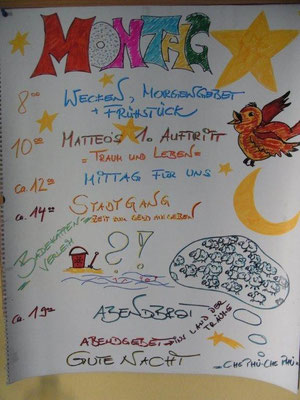 MONTAG
8⁰⁰ WECKEN, MORGENGEBET
+ FRÜHSTÜCK
10⁰⁰ MATTEO'S 1. AUFTRITT
= TRAUM UND LEBEN =
ca. 12⁰⁰ MITTAG FÜR UNS
ca. 14⁰⁰ STADTGANG
ZEIT ZUM GELD AUSGEBEN
?!
ca. 19⁰⁰ ABENDBREI
ABENDGEBET → INS LAND DER TRÄUME
GUTE NACHT